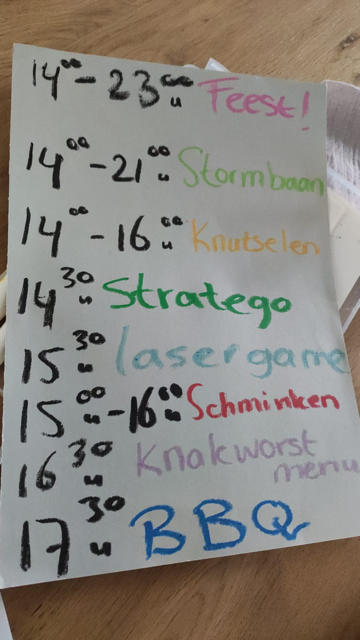 14⁰⁰ - 23⁰⁰u Feest!
14⁰⁰ - 21⁰⁰u Stormbaan
14⁰⁰ - 16⁰⁰u Knutselen
14³⁰u Stratego
15³⁰u lasergame
15⁰⁰u - 16⁰⁰u Schminken
16³⁰u Knakworst
menu
17³⁰u BBQ